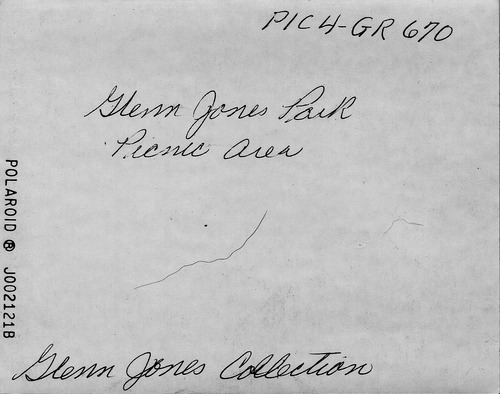 PIC4-GR 670
Glenn Jones Park
Picnic Area
POLAROID ® J002121B
Glenn Jones Collection